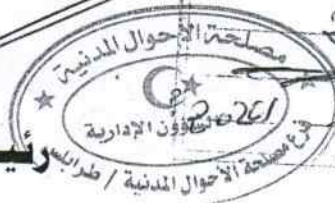 مصلحة الأحوال المدنية
الشؤون الإدارية
فرع مصلحة الأحوال المدنية / طرابلس